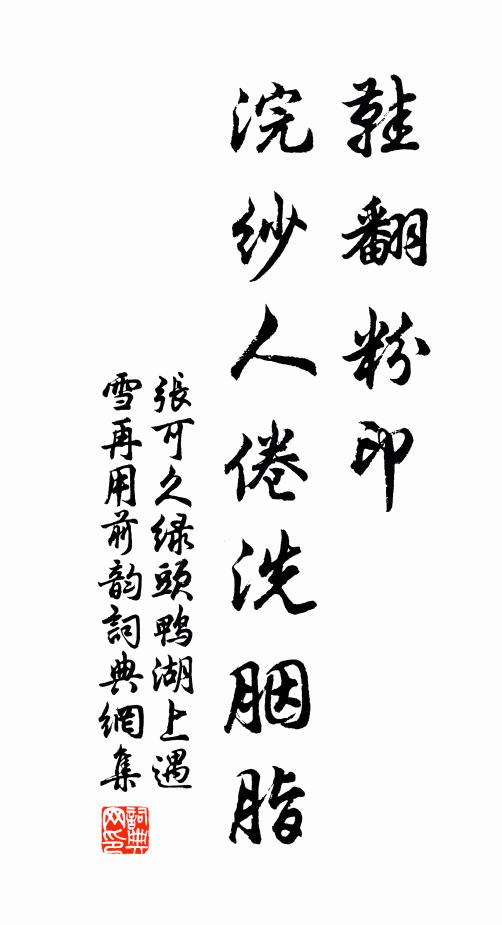 鞋翻粉印
浣纱人倦洗胭脂
張可久绿頭鴨湖上遇
雪再用前韵詞典網集
詞典
网印